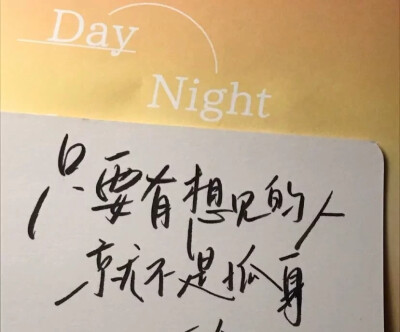 Day
Night
只要有想见的人
就不是孤身